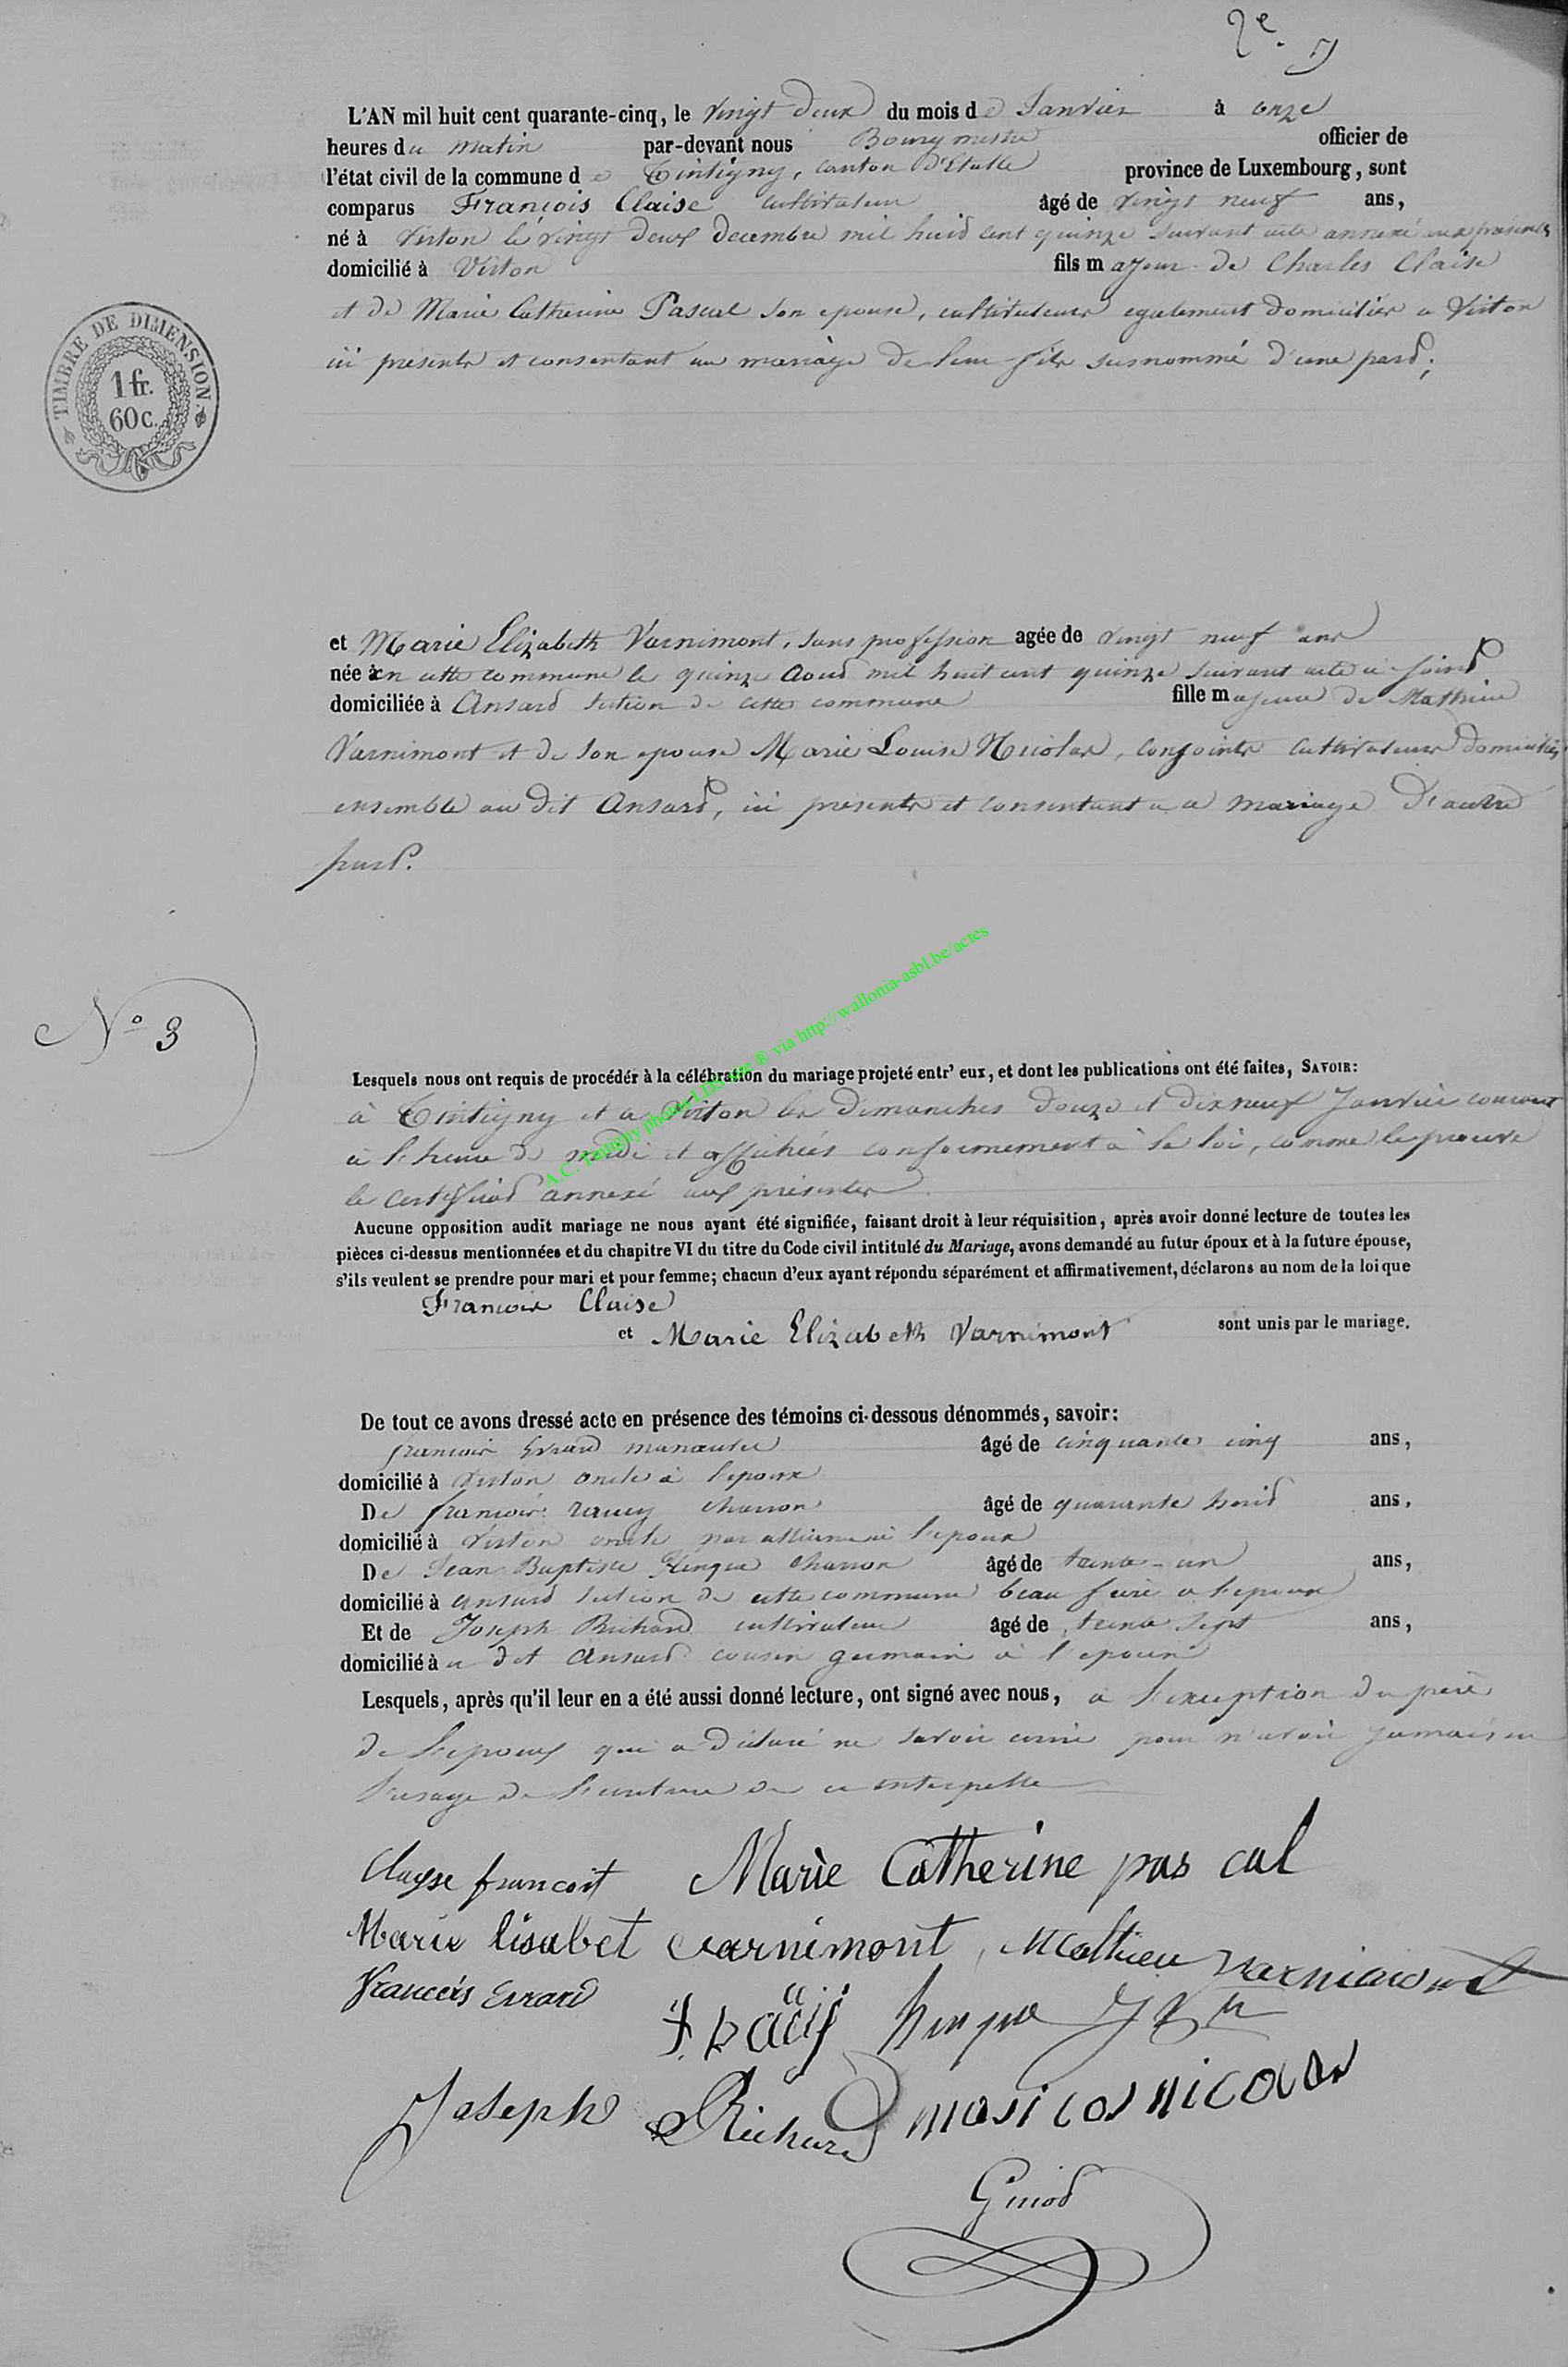 2e.
L'AN mil huit cent quarante-cinq, le vingt deux du mois de Janvier à onze
heures du matin par-devant nous Bourgmestre officier de
l'état civil de la commune de Tintigny, canton d'Etalle province de Luxembourg, sont
comparus François Claise cultivateur âgé de vingt neuf ans,
né à Virton le vingt deux decembre mil huid cent quinze suivant acte annexé aux présentes
domicilié à Virton fils majeur de Charles Claise
et de Marie Catherine Pascal son epouse, cultivateurs egalement domiciliés a Virton
ici présents et consentant au mariage de leur fils susnommé d'une part;
TIMBRE DE DIMENSION.
1 fr.
60 c.
et Marie Elizabeth Varnimont, sans profession agée de vingt neuf ans
née à en cette commune le quinze Aout mil huit cent quinze suivant acte ci joint
domiciliée à Ansard section de cette commune fille majeure de Mathieu
Varnimont et de son epouse Marie Louise Nicolas, conjoints cultivateurs domiciliés
ensemble au dit Ansard, ici présents et consentant a ce mariage d'autre
part.
No 3
Lesquels nous ont requis de procédér à la célébration du mariage projeté entr' eux, et dont les publications ont été faites, SAVOIR:
à Tintigny et a Virton les dimanches douze et dix neuf Janvier courant
à l'heure de midi et affichées conformement à la loi, comme le prouve
le certificat annexé aux présentes
A.C. Tintigny photos LDS-tree ® via http://wallonia-asbl.be/actes
Aucune opposition audit mariage ne nous ayant été signifiée, faisant droit à leur réquisition, après avoir donné lecture de toutes les
pièces ci-dessus mentionnées et du chapitre VI du titre du Code civil intitulé du Mariage, avons demandé au futur époux et à la future épouse,
s'ils veulent se prendre pour mari et pour femme; chacun d'eux ayant répondu séparément et affirmativement, déclarons au nom de la loi que
Francois Claise
et Marie Elizabeth Varnimont sont unis par le mariage.
De tout ce avons dressé acte en présence des témoins ci-dessous dénommés, savoir:
francois Evrard âgé de cinquante cinq ans,
domicilié à Virton oncle à l'epoux
De francois charron âgé de quarante huid ans,
domicilié à Virton oncle par alliance à l'epoux
De Jean Baptiste charron âgé de trente-un ans,
domicilié à Ansard section de cette commune beau frère a l'epoux
Et de Joseph Richard cultivateur âgé de trente sept ans,
domicilié à u dit Ansard cousin germain à l'epouse
Lesquels, après qu'il leur en a été aussi donné lecture, ont signé avec nous, a l'exception du père
de l'epoux qui a déclaré ne savoir ecrire pour n'avoir jamais eu
l'usage de l'ecriture de ce interpelle
Clayse francoit Marie Catherine pas cal
Marie lisabet varnimont, Mathieu varnimont
Francois Evrard
Joseph Richard mari los nicolas